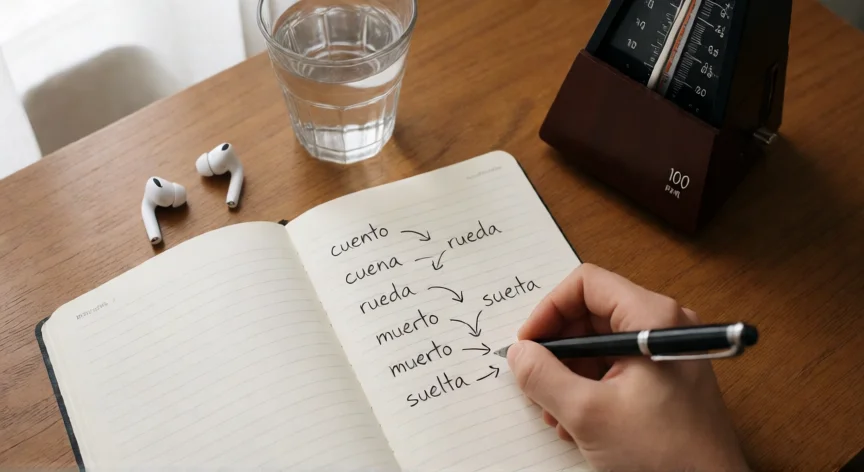 cuento rueda
cuena
rueda suelta
muerto
muerto
suelta
100